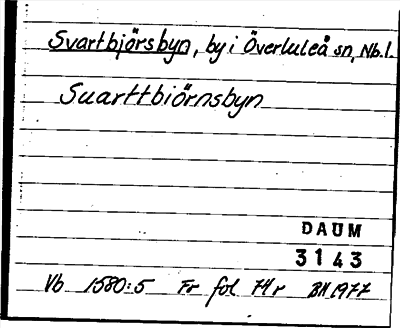 Svartbjörsbyn, by i Överluleå sn, Nb.l.
Suarttbiörnsbyn
DAUM
3143
Vb 1580:5 Fr fol 74r BH 1977